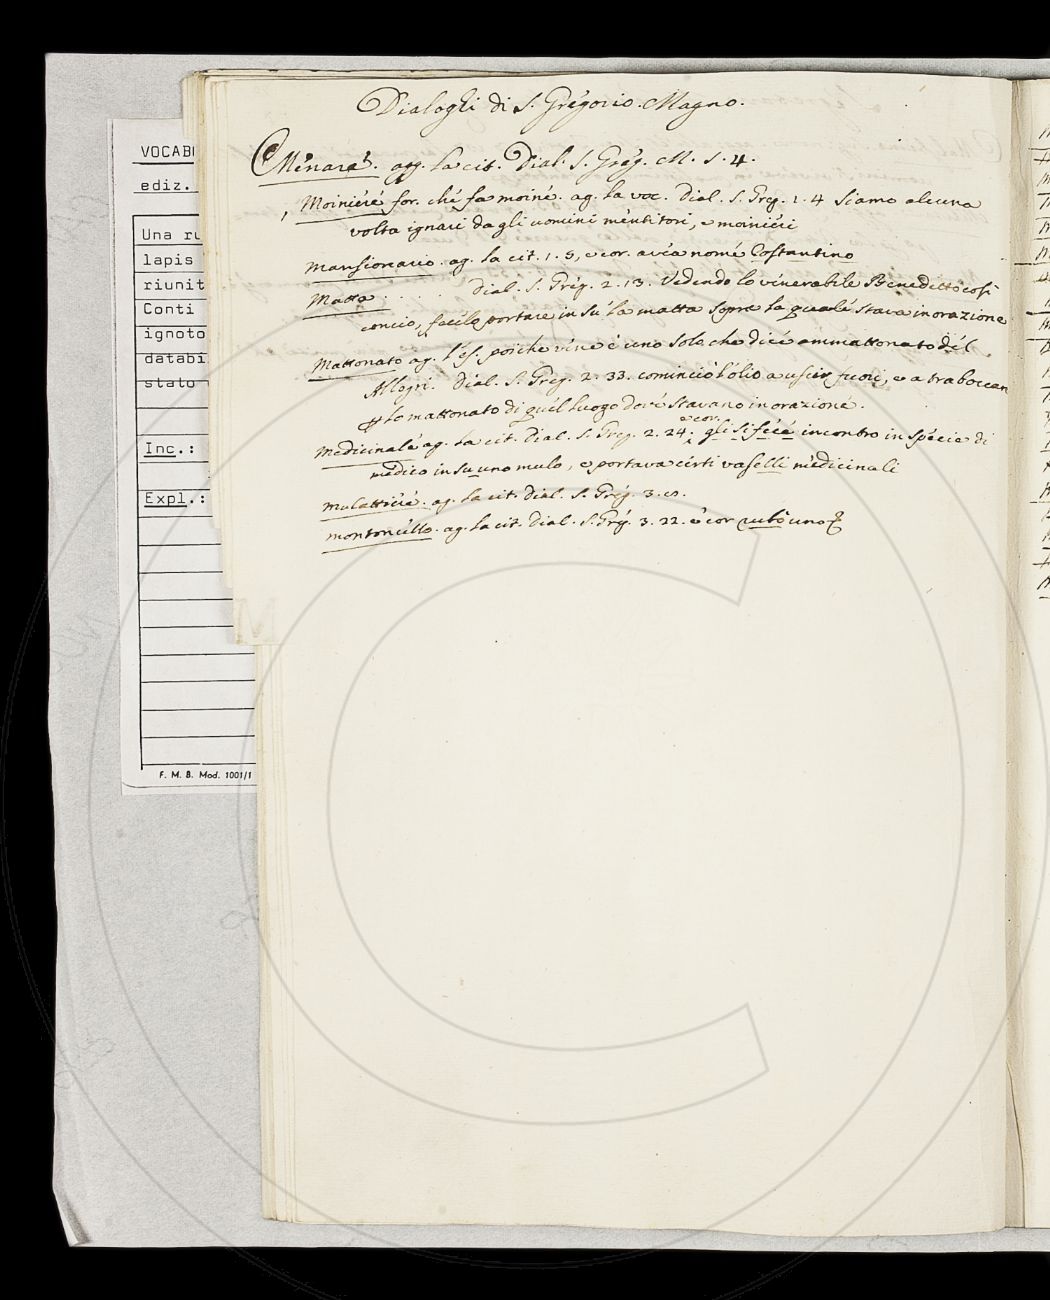 Dialoghi di S. Gregorio Magno.
Menare. agg. la cit. Dial. S. Greg. M. 1. 4.
Moiniere for. che fa moine. ag. la voc. Dial. S. Greg. 1. 4 Siamo alcuna
volta ignari dagli uomini mentitori, e moinieri
Mansionario. ag. la cit. 1. 5, e cor. avea nome Costantino
Matta . . . . Dial. S. Greg. 2. 13. Vedendo lo venerabile Benedetto così
concio, fecelo portare in sù la matta sopra la quale stava in orazione
Mattonato ag. l'es. poiche vene è uno solo che dice ammattonato del
Allegri. Dial. S. Greg. 2. 33. cominciò l'olio a uscir fuori, e a traboccar
lo mattonato di quel luogo dove stavano in orazione.
Medicinale ag. la cit. Dial. S. Greg. 2. 24. e cor. gli si fece incontro in specie di
medico in su uno mulo, e portava certi vaselli medicinali
mulattiere. ag. la cit. Dial. S. Greg. 3.
montoncello. ag. la cit. Dial. S. Greg. 3. 22. e cor rubò uno
VOCAB
ediz.
Una ru
lapis
riunit
Conti
ignoto
databi
stato
Inc.:
Expl.:
F. M. B. Mod. 1001/1